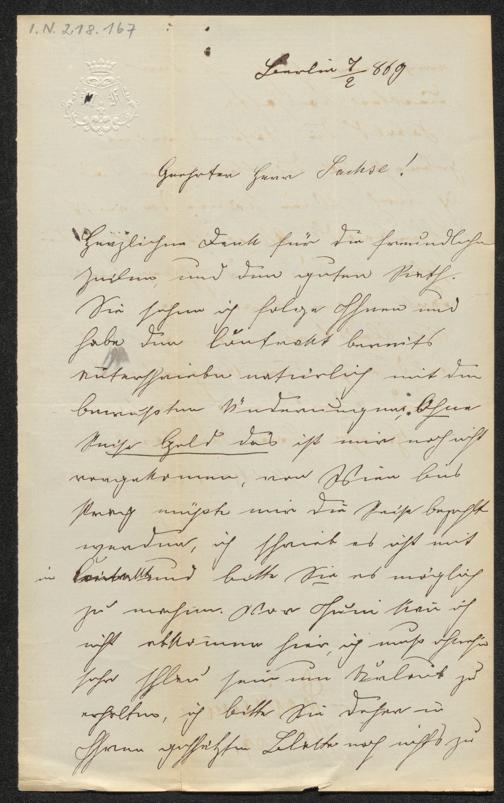 I.N. 218.167
Berlin 7/2 869
Geehrter Herr Sachse!
Herzlichen Dank für die freundlichen
Zeilen, und den guten Rath.
Sie sehen ich folge Ihnen und
habe den Contrakt bereits
unterschrieben natürlich mit den
bewußten Änderungen, Ohne
Reise Geld das ist mir noch nicht
vorgekommen, von Wien bis
Prag müßte mir die Reise bezahlt
werden, ich schrieb es mit
in und bitte Sie es möglich
zu machen. Vor Juni kann ich
nicht abkommen hier, ich muß ohnehin
sehr schlau sein um Urlaub zu
erhalten, ich bitte Sie daher in
Ihrem geschätzten Blatte noch nichts zu